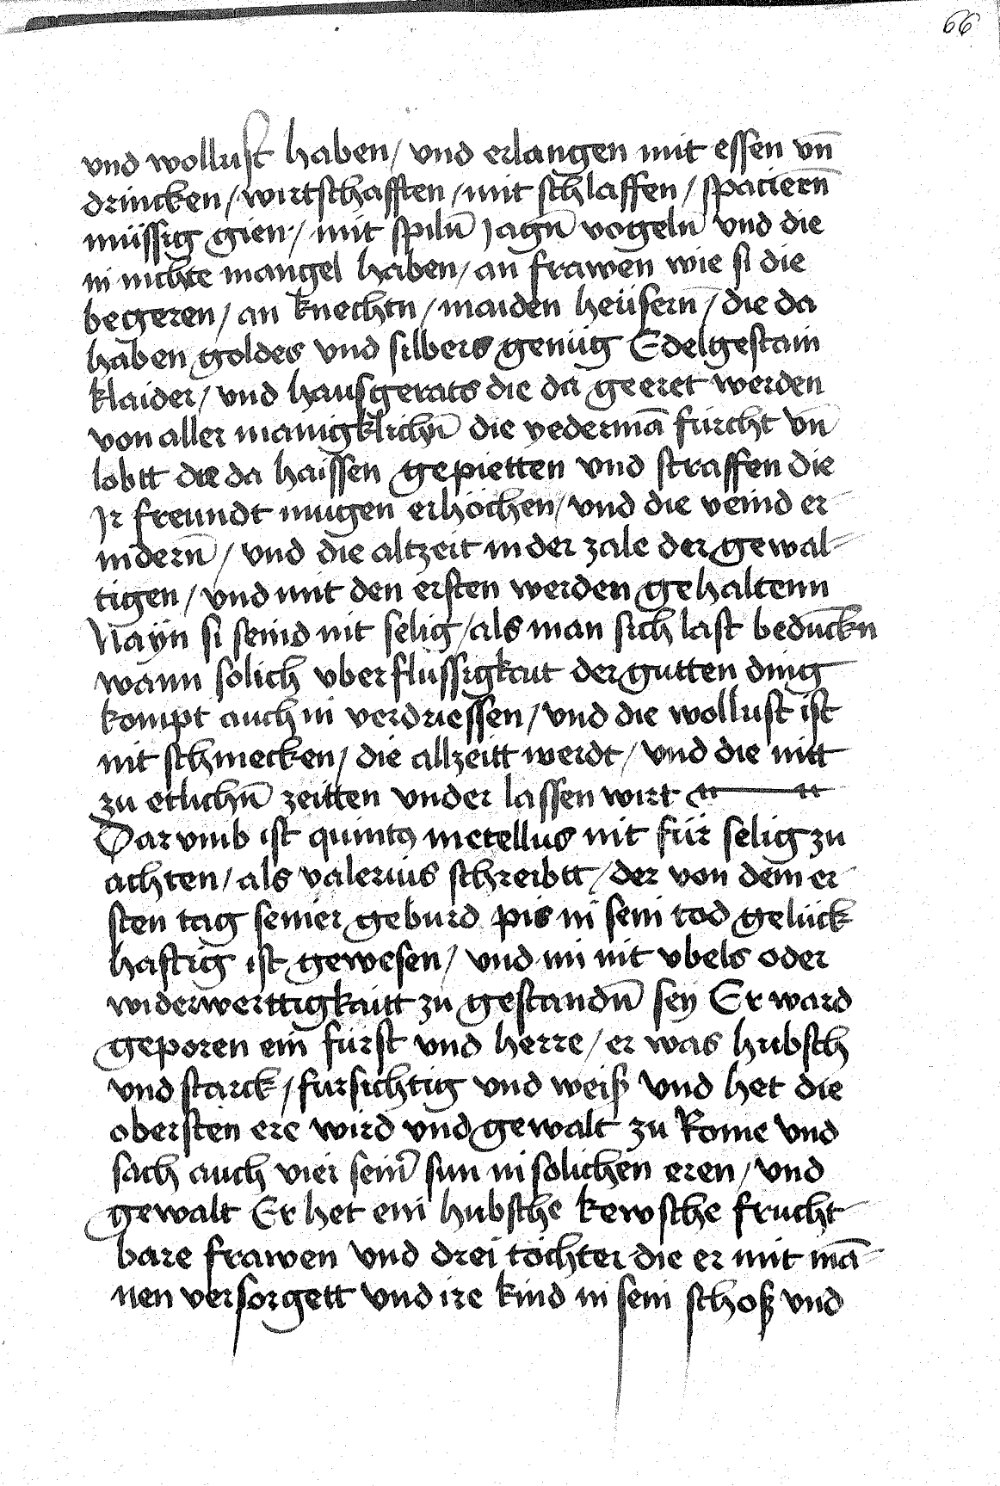 66
vnd wollust haben / vnd erlangen mit essen vn̄
drincken / wirtschafften / mit schlaffen / spaciern̄
müssig gien / mit spiln̄ Jagn̄ vogeln̄ vnd die
in nichte mangel haben / an frawen wie si die
begeren / an knechtn / maiden heüsern̄ / die da
haben goldes vnd silbers genüg Edelgestain
klaider / vnd hausgerats die da geeret werden
von aller manigklichn̄ die yedermā fürcht vn̄
lobtt die da haissen gepietten vnd straffen die
Jr freundt mugen erhöchen / vnd die veind er
nidern̄ / vnd die altzeit in der zale der gewal-
tigen / vnd mit den ersten werden gehaltenn
Nayn si seind nit selig / als man sich last beduckn̄
wann solich vberflüssigkait der gutten ding
kompt auch in verdriessen / vnd die wollust ist
nit schmecken / die allzeitt werdt / vnd die nitt
zu etlichn̄ zeitten vnder lassen wirt
Dar vmb ist quintus metellus nit für selig zu
achten / als valerius schreibtt / der von dem er
sten tag seiner geburd pis in sein tod gelück
hafftig ist gewesen / vnd im nit vbels oder
widerwerttigkaitt zu gestandn̄ sey Er ward
geporen ein fürst vnd herre / er was hubsch
vnd starck / fürsichtig vnd weiß vnd het die
obersten ere wird vnd gewalt zu Rome vnd
sach auch vier sein̄ sun in solichen eren / vnd
gewalt Er het ein hubsche kewsche frucht
bare frawen vnd drei töchter die er mit mā-
nen versorgett vnd ire kind in sein schoß vnd